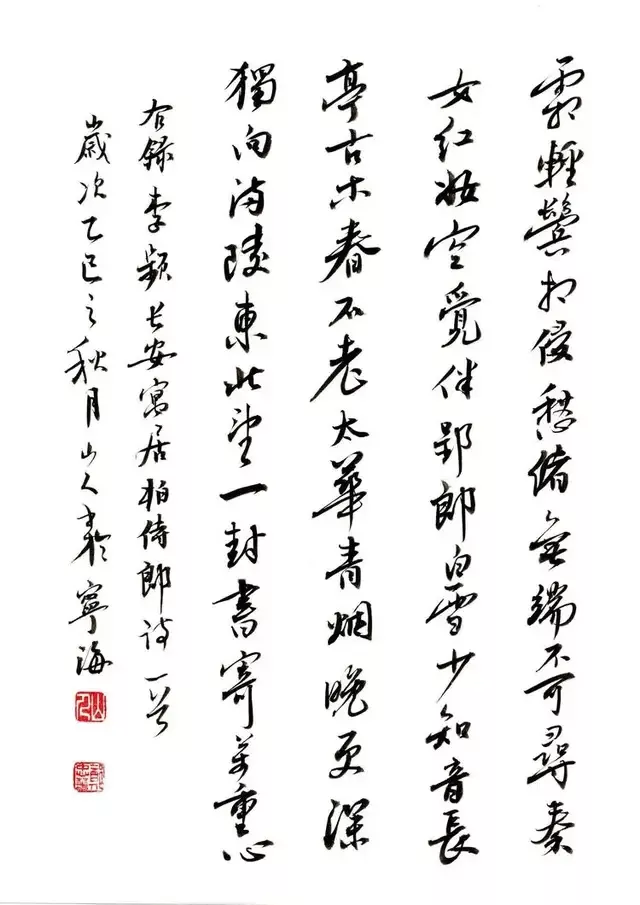 霜輕鬢相侵愁緒無端不可尋秦
女紅妝空覓伴郢郎白雪少知音長
亭古木春不老太華青烟晚更深
獨向灞陵東北望一封書寄萬重心
右録李頻長安寓居柏侍郎詩一首
歲次乙巳之秋月山人書於寧海
山人